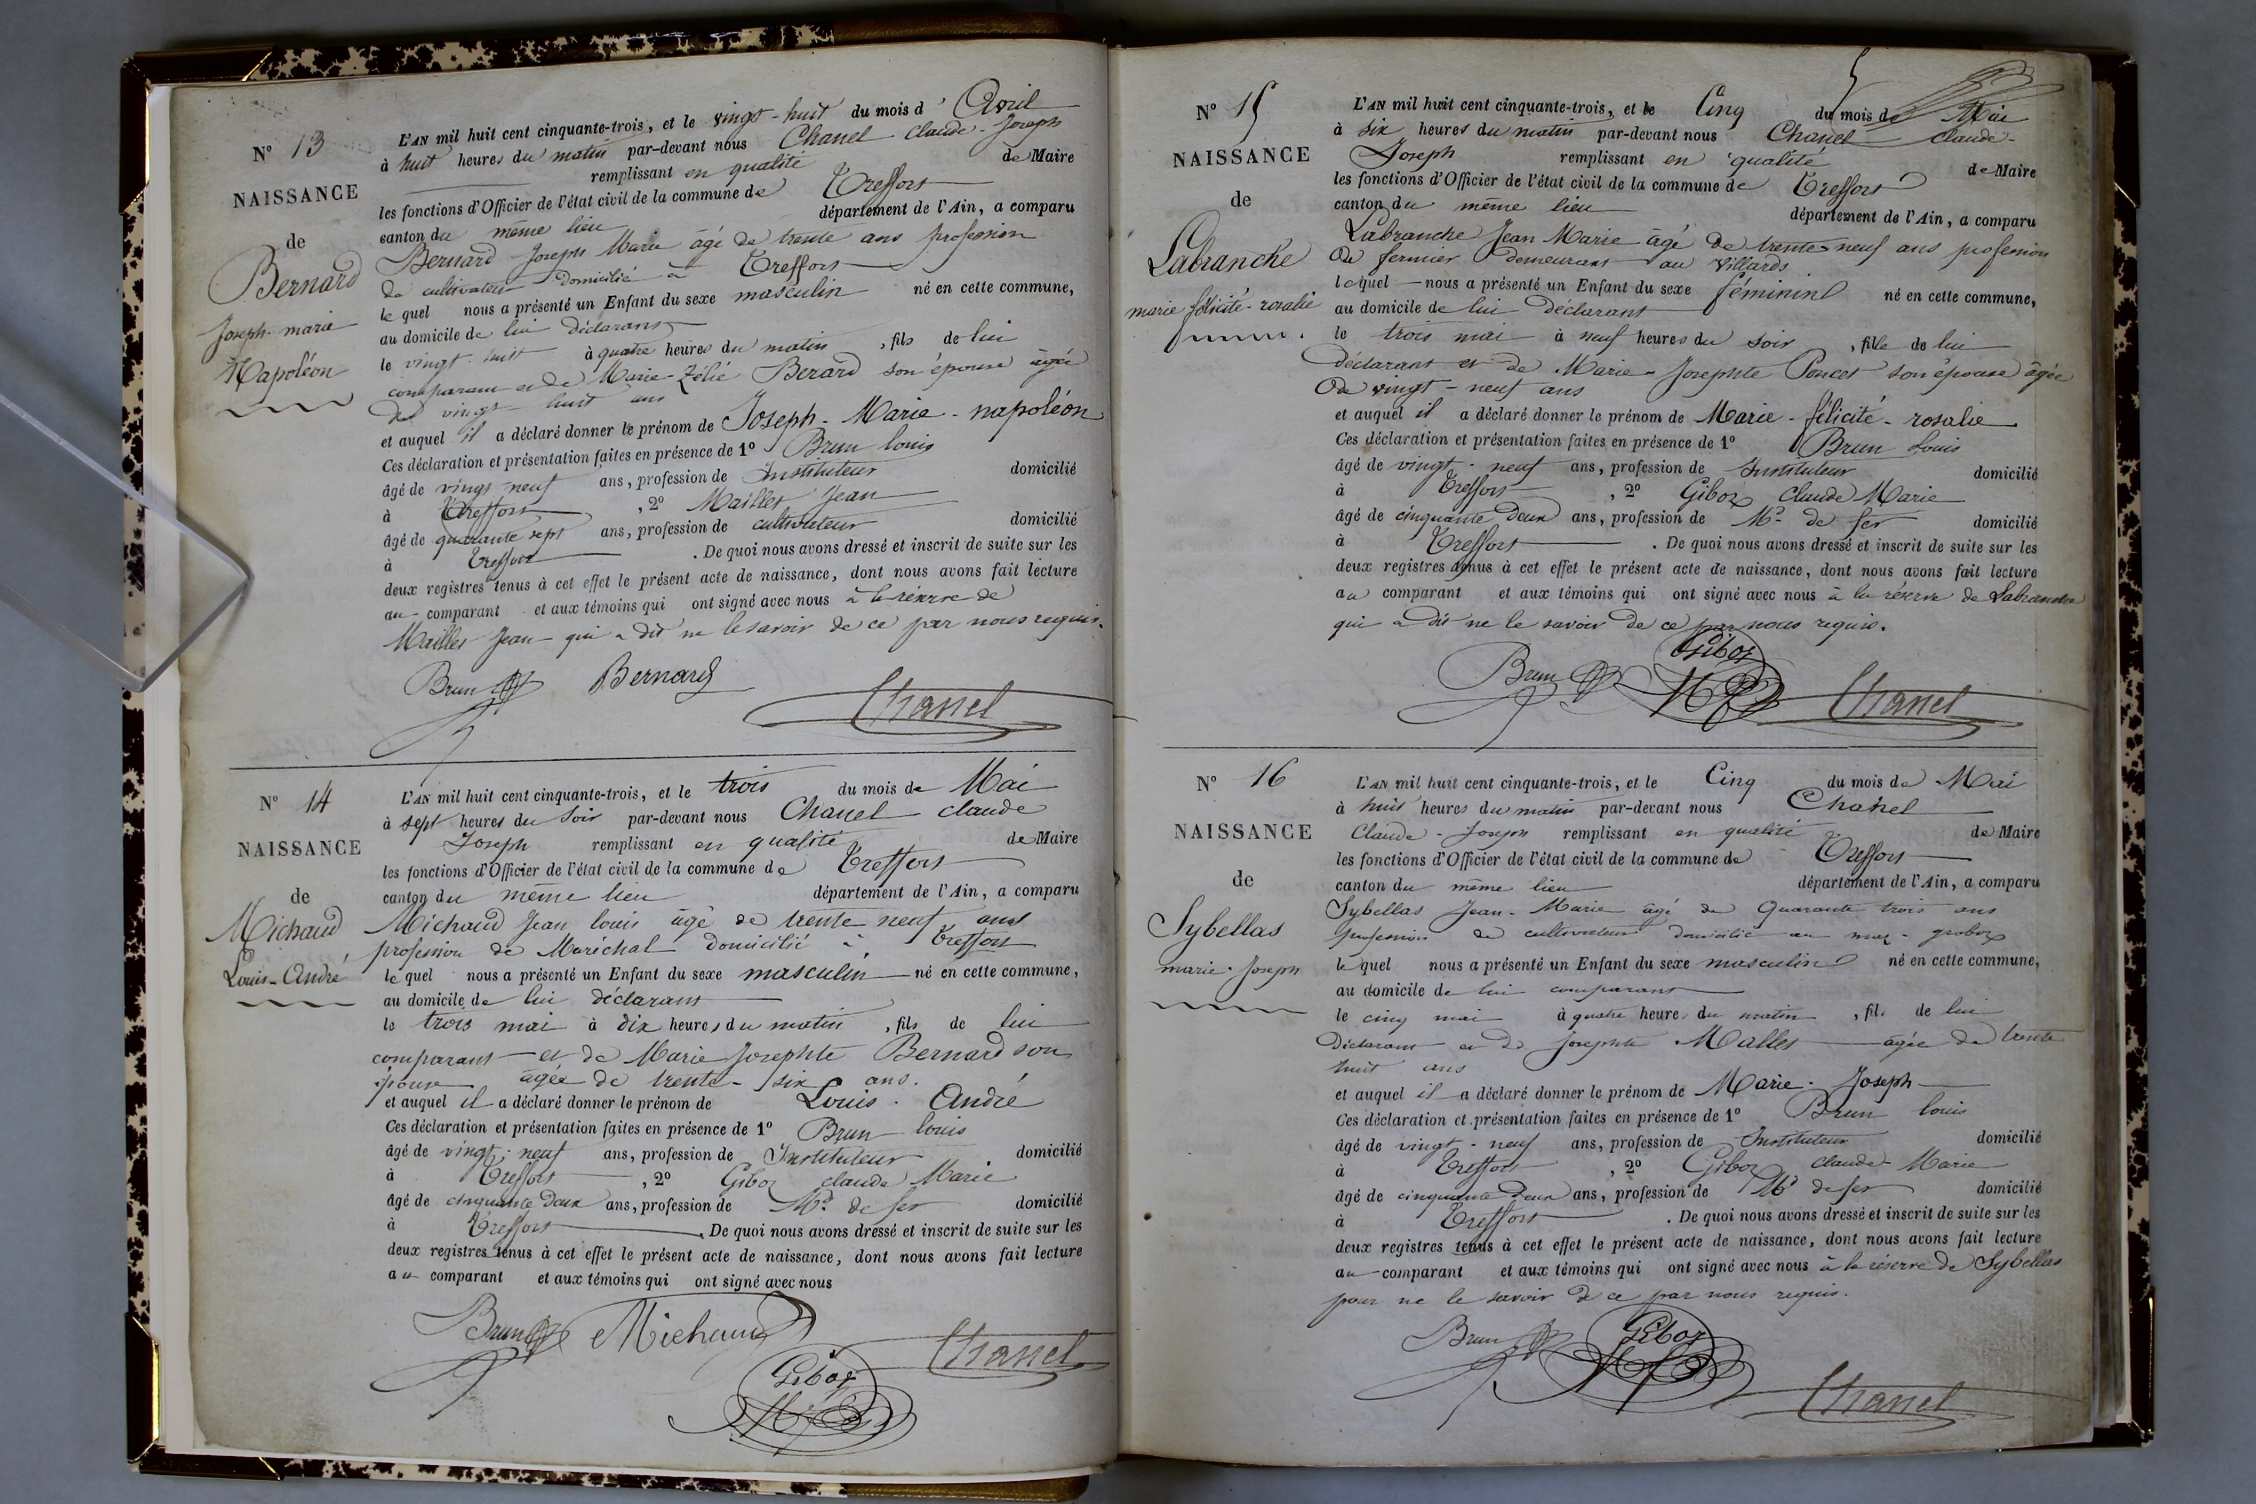 N° 13
NAISSANCE
de
Bernard
Joseph-marie
Napoléon
L'AN mil huit cent cinquante-trois, et le vingt-huit du mois d' Avril
à huit heures du matin par-devant nous Chanel Claude-Joseph
remplissant en qualité de Maire
les fonctions d'Officier de l'état civil de la commune de Treffort
canton du même lieu département de l'Ain, a comparu
Bernard Joseph Marie âgé de trente ans profession
de cultivateur domicilié à Treffort
lequel nous a présenté un Enfant du sexe masculin né en cette commune,
au domicile de lui déclarant
le vingt-huit à quatre heures du matin, fils de lui
comparant et de Marie-Zélié Berard son épouse âgée
de vingt-huit ans
et auquel il a déclaré donner le prénom de Joseph-Marie-napoléon
Ces déclaration et présentation faites en présence de 1° Brun louis
âgé de vingt-neuf ans, profession de Instituteur domicilié
à Treffort, 2° Maillet Jean
âgé de quarante sept ans, profession de cultivateur domicilié
à Treffort. De quoi nous avons dressé et inscrit de suite sur les
deux registres tenus à cet effet le présent acte de naissance, dont nous avons fait lecture
au comparant et aux témoins qui ont signé avec nous à la réserve de
Maillet Jean qui a dit ne le savoir de ce par nous requis.
Brun Bernard Chanel
N° 14
NAISSANCE
de
Michaud
Louis-André
L'AN mil huit cent cinquante-trois, et le trois du mois de Mai
à sept heures du soir par-devant nous Chanel claude
Joseph remplissant en qualité de Maire
les fonctions d'Officier de l'état civil de la commune de Treffort
canton du même lieu département de l'Ain, a comparu
Michaud Jean louis âgé de trente neuf ans
profession de Maréchal domicilié à Treffort
lequel nous a présenté un Enfant du sexe masculin né en cette commune,
au domicile de lui déclarant
le trois mai à dix heures du matin, fils de lui
comparant et de Marie Josephte Bernard son
épouse âgée de trente-six ans.
et auquel il a déclaré donner le prénom de Louis-André
Ces déclaration et présentation faites en présence de 1° Brun louis
âgé de vingt-neuf ans, profession de Instituteur domicilié
à Treffort, 2° Giboz claude Marie
âgé de cinquante deux ans, profession de Md. de fer domicilié
à Treffort. De quoi nous avons dressé et inscrit de suite sur les
deux registres tenus à cet effet le présent acte de naissance, dont nous avons fait lecture
au comparant et aux témoins qui ont signé avec nous
Brun Michaud Chanel
Giboz
5
N° 15
NAISSANCE
de
Labranche
marie félicité-rosalie
L'AN mil huit cent cinquante-trois, et le Cinq du mois de Mai
à six heures du matin par-devant nous Chanel Claude-
Joseph remplissant en qualité de Maire
les fonctions d'Officier de l'état civil de la commune de Treffort
canton du même lieu département de l'Ain, a comparu
Labranche Jean Marie âgé de trente neuf ans profession
de fermier demeurant au Villards
lequel nous a présenté un Enfant du sexe féminin né en cette commune,
au domicile de lui déclarant
le trois mai à neuf heures du soir, fille de lui
déclarant et de Marie-Josephte Poncet son épouse âgée
de vingt-neuf ans
et auquel il a déclaré donner le prénom de Marie-félicité-rosalie
Ces déclaration et présentation faites en présence de 1° Brun Louis
âgé de vingt-neuf ans, profession de Instituteur domicilié
à Treffort, 2° Giboz Claude Marie
âgé de cinquante deux ans, profession de Md. de fer domicilié
à Treffort. De quoi nous avons dressé et inscrit de suite sur les
deux registres tenus à cet effet le présent acte de naissance, dont nous avons fait lecture
au comparant et aux témoins qui ont signé avec nous à la réserve de Labranche
qui a dit ne le savoir de ce par nous requis.
Brun Giboz Chanel
N° 16
NAISSANCE
de
Sybellas
marie-Joseph
L'AN mil huit cent cinquante-trois, et le Cinq du mois de Mai
à huit heures du matin par-devant nous Chanel
Claude-Joseph remplissant en qualité de Maire
les fonctions d'Officier de l'état civil de la commune de Treffort
canton du même lieu département de l'Ain, a comparu
Sybellas Jean-Marie âgé de Quarante trois ans
profession de cultivateur domicilié au maz-groboz
lequel nous a présenté un Enfant du sexe masculin né en cette commune,
au domicile de lui comparant
le cinq mai à quatre heures du matin, fils de lui
Déclarant et de Josephte Malles âgée de trente
huit ans
et auquel il a déclaré donner le prénom de Marie-Joseph
Ces déclaration et présentation faites en présence de 1° Brun louis
âgé de vingt-neuf ans, profession de Instituteur domicilié
à Treffort, 2° Giboz claude-Marie
âgé de cinquante deux ans, profession de Md de fer domicilié
à Treffort. De quoi nous avons dressé et inscrit de suite sur les
deux registres tenus à cet effet le présent acte de naissance, dont nous avons fait lecture
au comparant et aux témoins qui ont signé avec nous à la réserve de Sybellas
pour ne le savoir de ce par nous requis.
Brun Giboz
Chanel